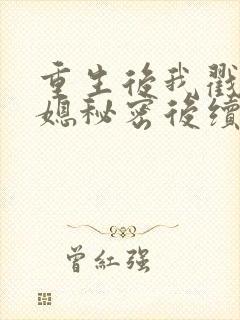 重生後我戳
媳秘密後續
曾紅強